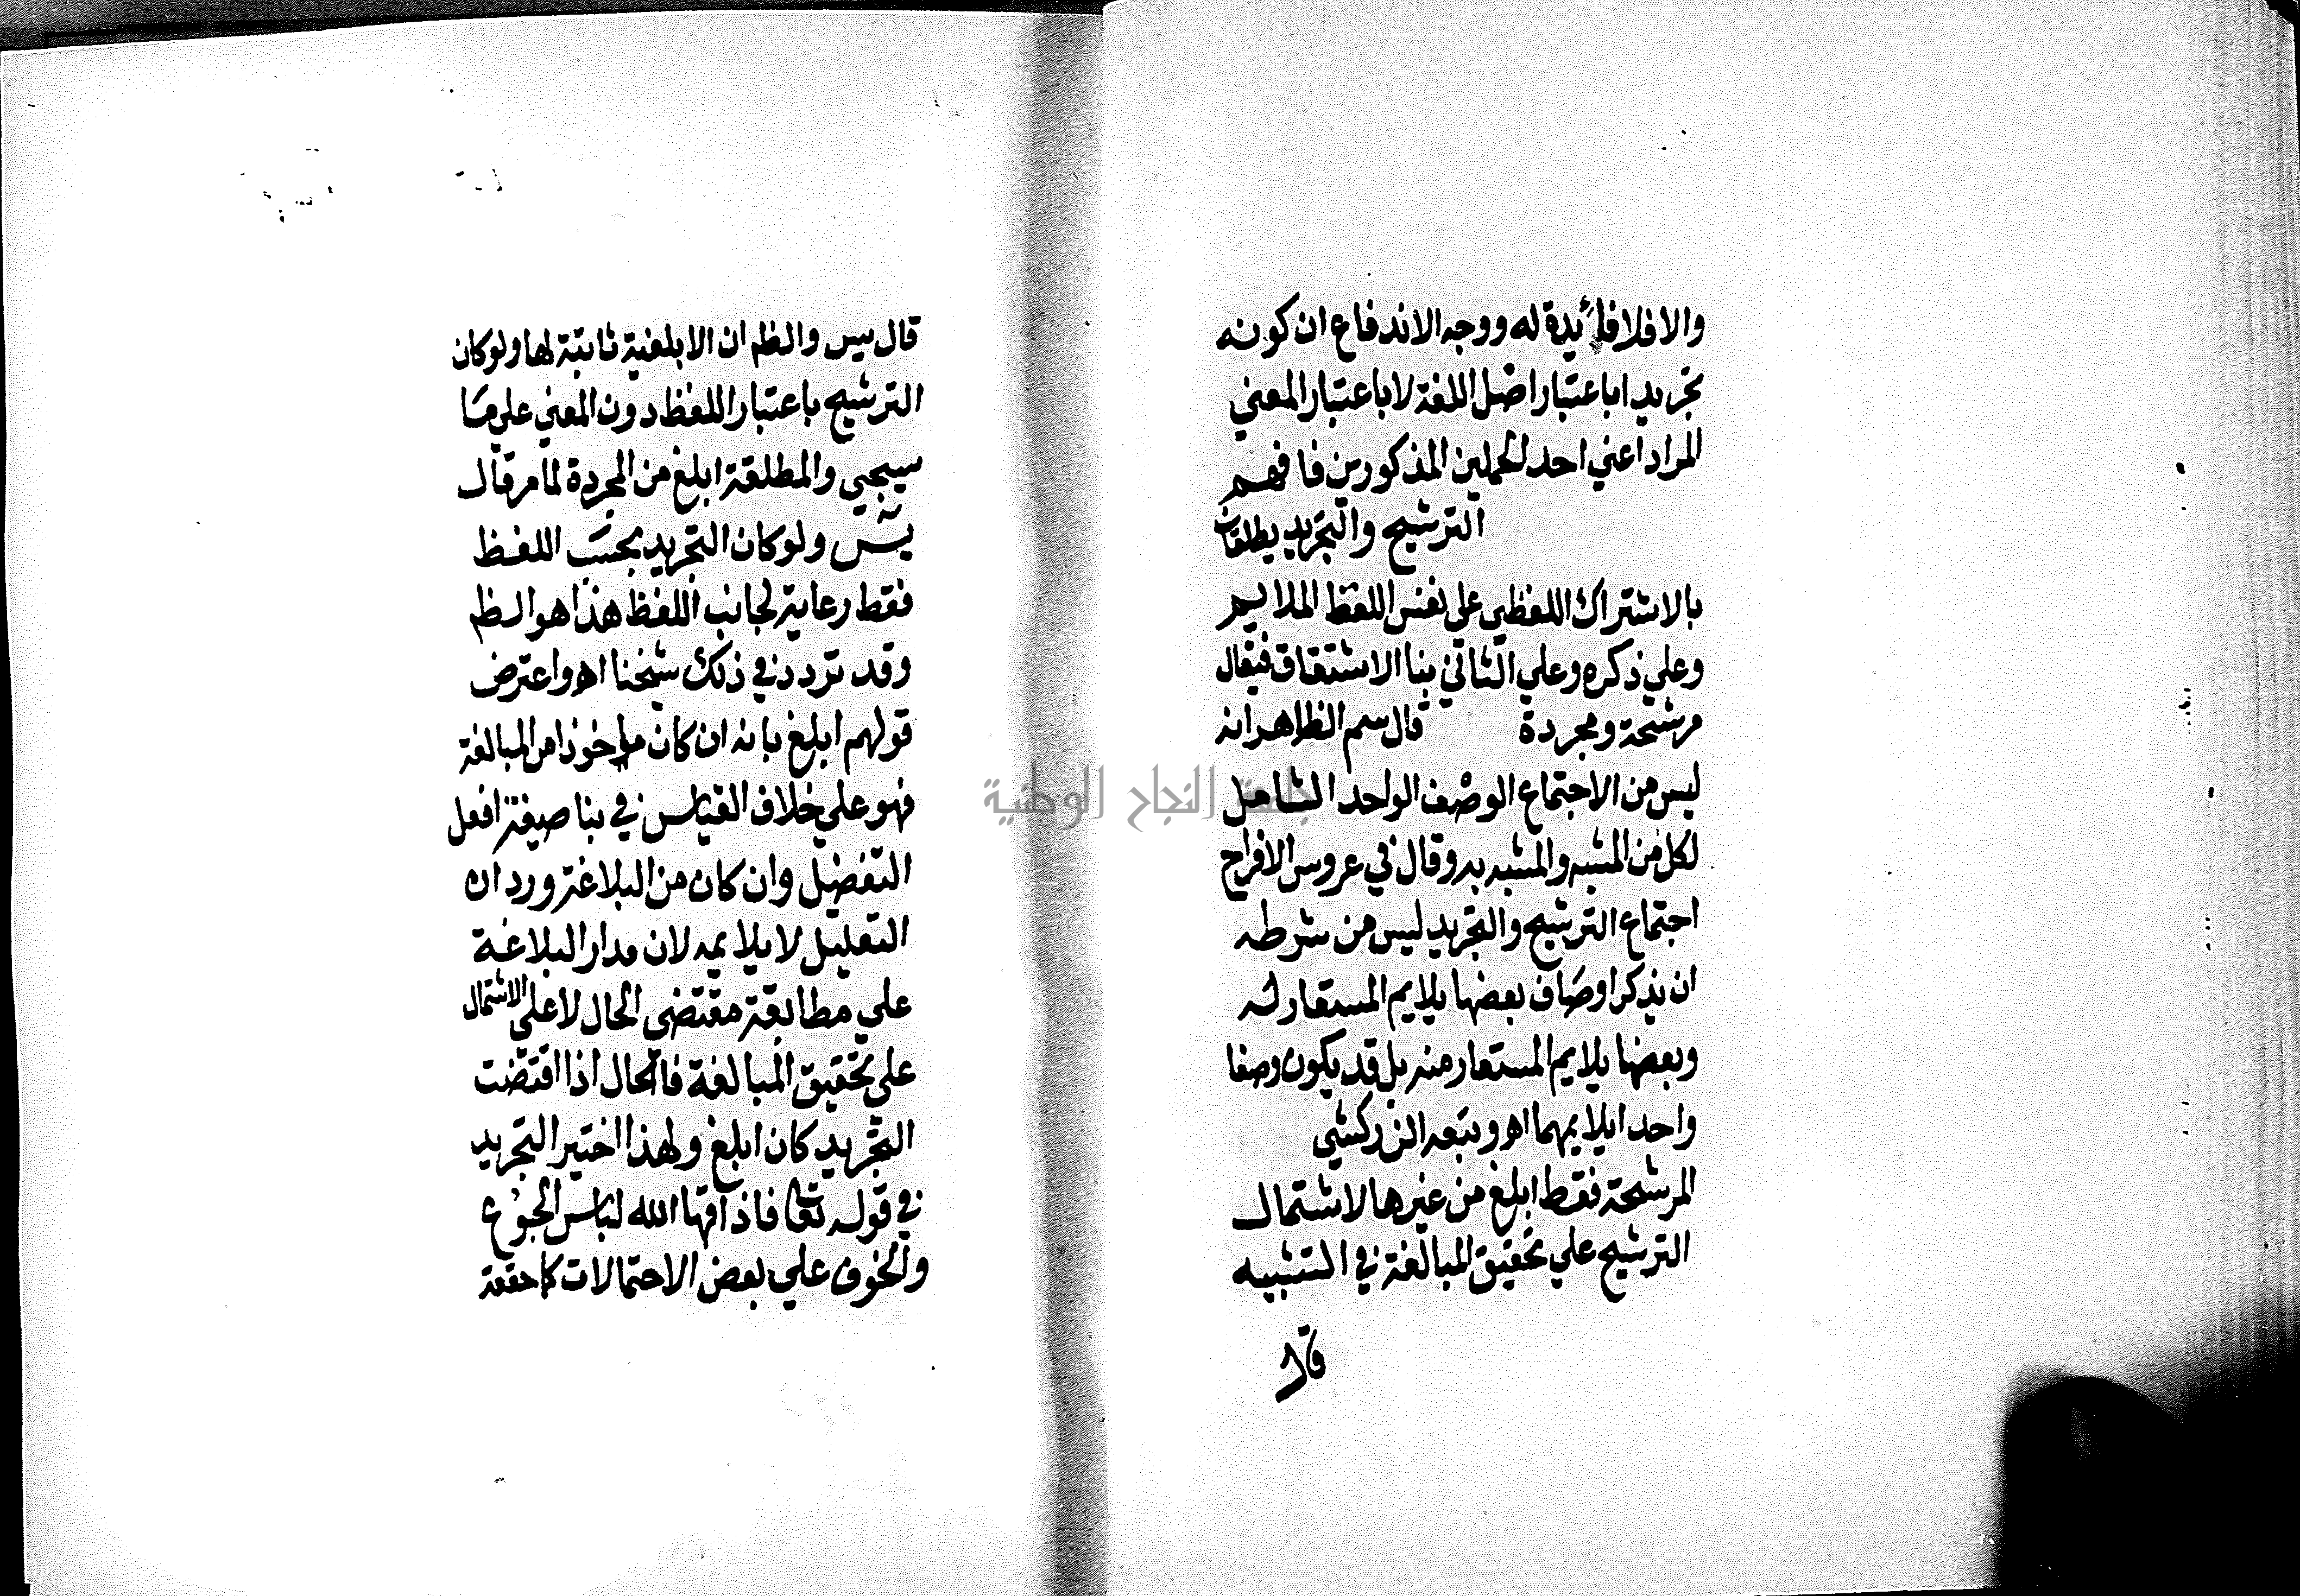 والا فلا فائدة له ووجه الاندفاع ان كونه
تجريدا باعتبار اصل اللغة لا باعتبار المعني
المراد اعني احد الحملين المذكورين فافهم
الترشيح والتجريد يطلقان
بالاشتراك اللفظي على نفس اللفظ الملايم
وعلي ذكره وعلي الثاني بنا الاشتقاق فيقال
مرشحة ومجردة قال سم الظاهر انه
ليس من الاجتماع الوصف الواحد الشامل
لكل من المشبه والمشبه به وقال في عروس الافراح
اجتماع الترشيح والتجريد ليس من شرطه
ان يذكر اوصاف بعضها يلايم المستعار له
وبعضها يلايم المستعار منه بل قد يكون وصفا
واحدا يلايمهما اه وتبعه الزركشي
المرشحة فقط ابلغ من غيرها لاشتمال
الترشيح علي تحقيق المبالغة في التشبيه
قال
قال يس والظ ان الابلغية ثابتة لها ولو كان
الترشيح باعتبار اللفظ دون المعني علي ما
سيجي والمطلقة ابلغ من المجردة لما مر قال
يس ولو كان التجريد بحسب اللفظ
فقط رعاية لجانب اللفظ هذا هو الظ
وقد تردد في ذلك شيخنا اه واعترض
قولهم ابلغ بانه ان كان ماخوذا من المبالغة
فهو علي خلاف القياس في بنا صيغة افعل
التفضيل وان كان من البلاغة ورد ان
التعليل لا يلايمه لان مدار البلاغة
علي مطابقة مقتضى الحال لا على الاشتمال
على تحقيق المبالغة فالحال اذا اقتضت
التجريد كان ابلغ ولهذا اختير التجريد
في قوله تعا فاذاقها الله لباس الجوع
والخوف علي بعض الاحتمالات كما حققه
جامعة النجاح الوطنية